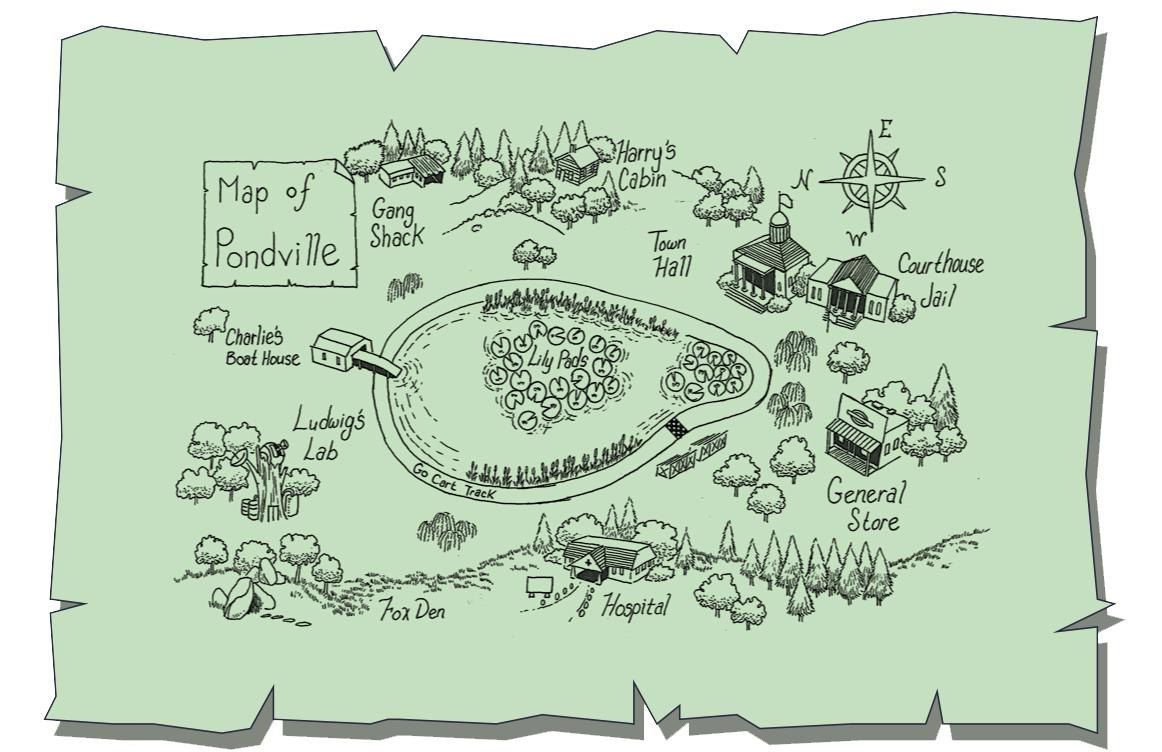 Map of
Pondville
Gang
Shack
Harry's
Cabin
E
N
S
W
Town
Hall
Courthouse
Jail
Charlie's
Boat House
Lily Pads
Ludwig's
Lab
Go Cart Track
General
Store
Fox Den
Hospital